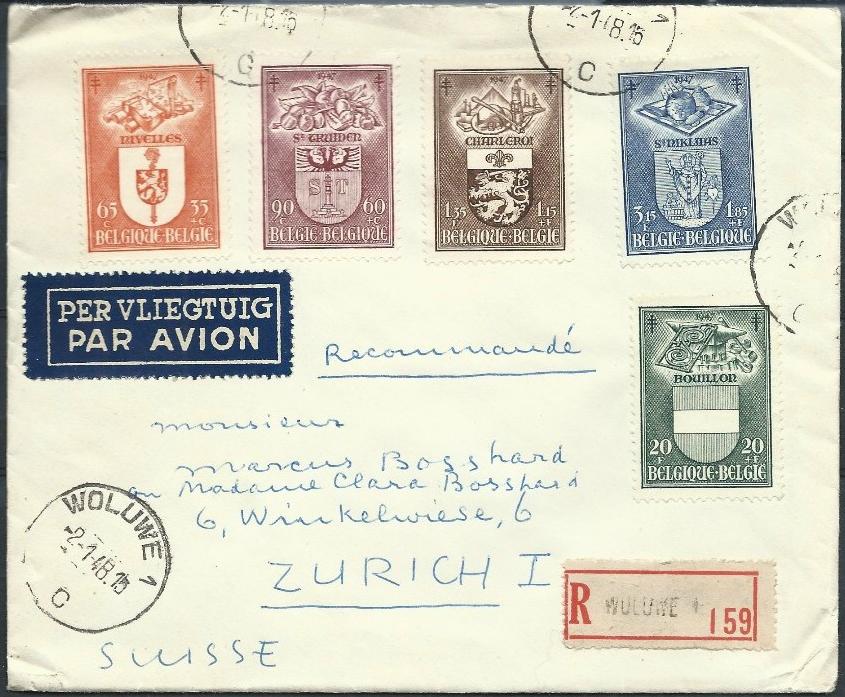 -2-1-48.15
C
-2-1-48.15
1
C
1947
NIVELLES
65 C 35 +C
BELGIQUE·BELGIE
1947
ST TRUIDEN
S T
90 C 60 +C
BELGIE·BELGIQUE
1947
CHARLEROI
1.35 F 1.15 +F
BELGIQUE·BELGIE
1947
ST NIKLAAS
3.15 F 1.85 +F
BELGIE·BELGIQUE
PER VLIEGTUIG
PAR AVION
1947
BOUILLON
20 F 20 +F
BELGIQUE·BELGIE
Recommandé
Monsieur
Marcus Bosshard
ou Madame Clara Bosshard
6, Winkelwiese, 6
ZURICH I
SUISSE
WOLUWE 1
-2-1-48.15
C
R WOLUWE 1
159